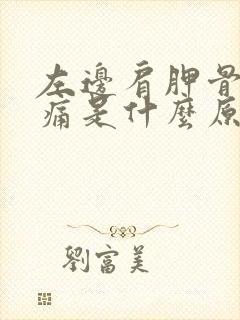 左邊肩胛骨
痛是什麼原
劉富美